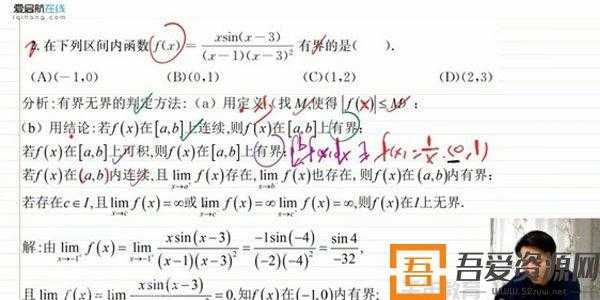 爱启航在线
iqihang.com
2. 在下列区间内函数 f(x) = xsin(x−3) / (x−1)(x−3)² 有界的是( ).
(A)(−1,0) (B)(0,1) (C)(1,2) (D)(2,3)
分析:有界无界的判定方法:(a)用定义(找M,使得|f(x)|≤M);
(b)用结论:若f(x)在[a,b]上连续,则f(x)在[a,b]上有界;
若f(x)在[a,b]上可积,则f(x)在[a,b]上有界; f(x)=1/x (0,1)
若f(x)在(a,b)内连续,且lim x→a⁺ f(x)存在,lim x→b⁻ f(x)也存在,则f(x)在(a,b)内有界;
若存在c∈I,且lim x→c f(x)=∞或lim x→c⁺ f(x)=∞ lim x→c⁻ f(x)=∞,则f(x)在I上无界.
解:由lim x→−1⁺ f(x)=lim x→−1⁺ xsin(x−3) / (x−1)(x−3)² = −1sin(−4) / (−2)(−4)² = sin4 / −32,
且lim f(x)=lim xsin(x−3) =0,知f(x)在(−1,0)内有界;
吾爱资源网
www.52rew.net